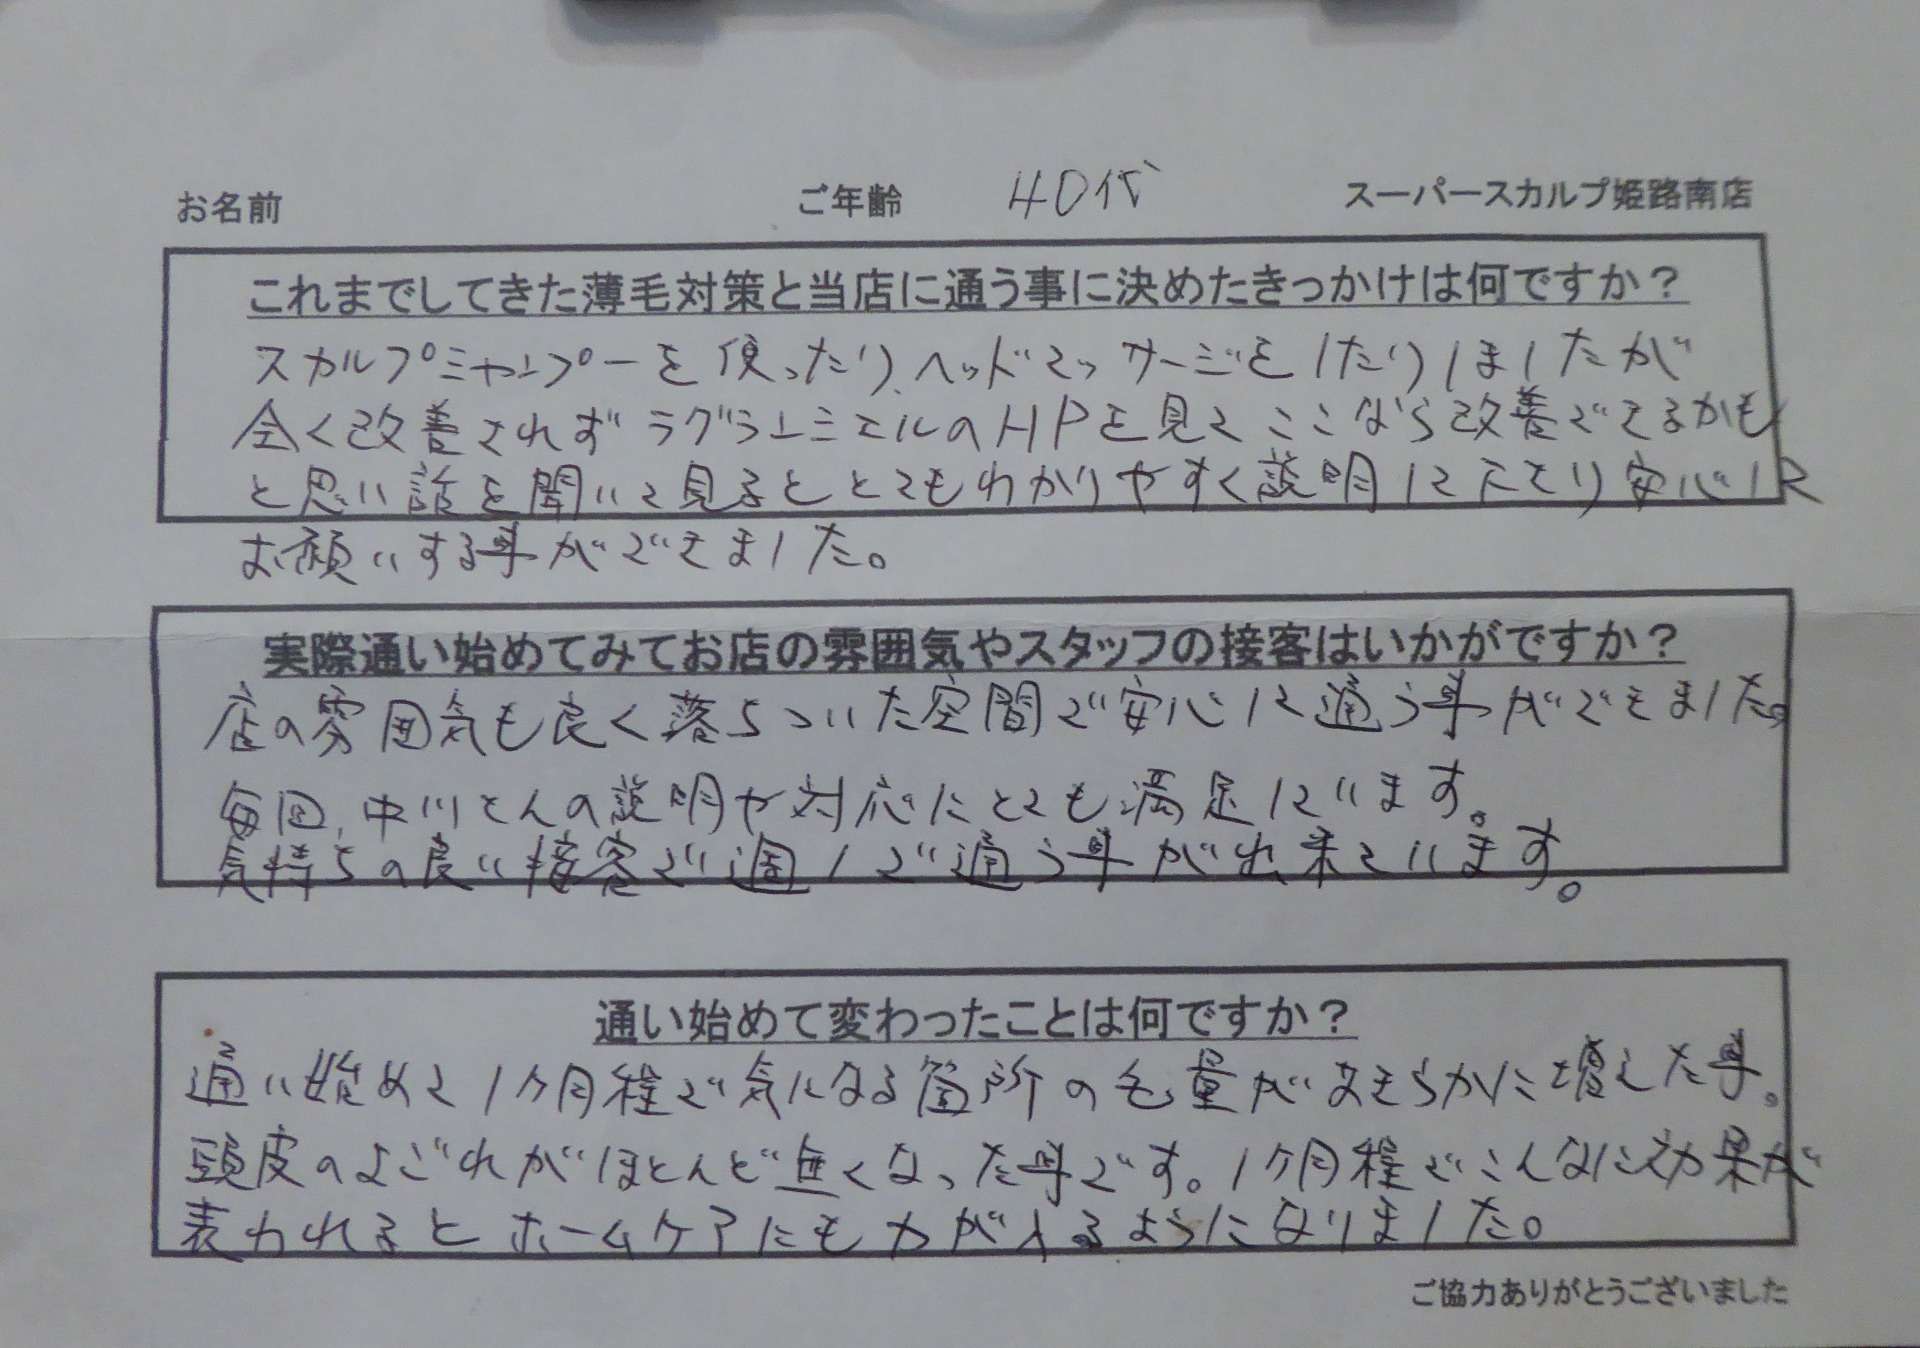 お名前 ご年齢 40代 スーパースカルプ姫路南店
これまでしてきた薄毛対策と当店に通う事に決めたきっかけは何ですか？
スカルプシャンプーを使ったり、ヘッドマッサージをしたりしましたが
全く改善されず ラグランシエルのHPを見て ここなら改善できるかも
と思い話を聞いて見るととてもわかりやすく説明して下さり安心して
お願いする事ができました。
実際通い始めてみてお店の雰囲気やスタッフの接客はいかがですか？
店の雰囲気も良く落ちついた空間で安心して通う事ができました。
毎回、中川さんの説明や対応にとても満足しています。
気持ちの良い接客で週1で通う事が出来ています。
通い始めて変わったことは何ですか？
通い始めて1ヶ月程で気になる箇所の毛量があきらかに増えた事。
頭皮のよごれがほとんど無くなった事です。1ヶ月程でこんなに効果が
表われると ホームケアにも力が入るようになりました。
ご協力ありがとうございました